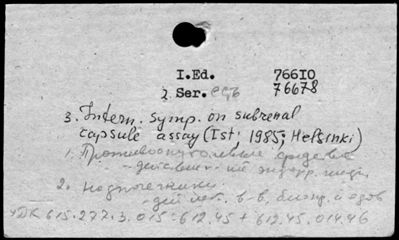 I.Ed. 76610
2. Ser. СПб 76678
3. Intern. Symp. on subrenal
capsule assay (1st; 1985; Helsinki)
1. Противоопухолевые средства
-действие - на
2. Надпочечники -
- дей. лек. в-в,
УДК 615.277.3.015:612.45 + 612.45.014.46